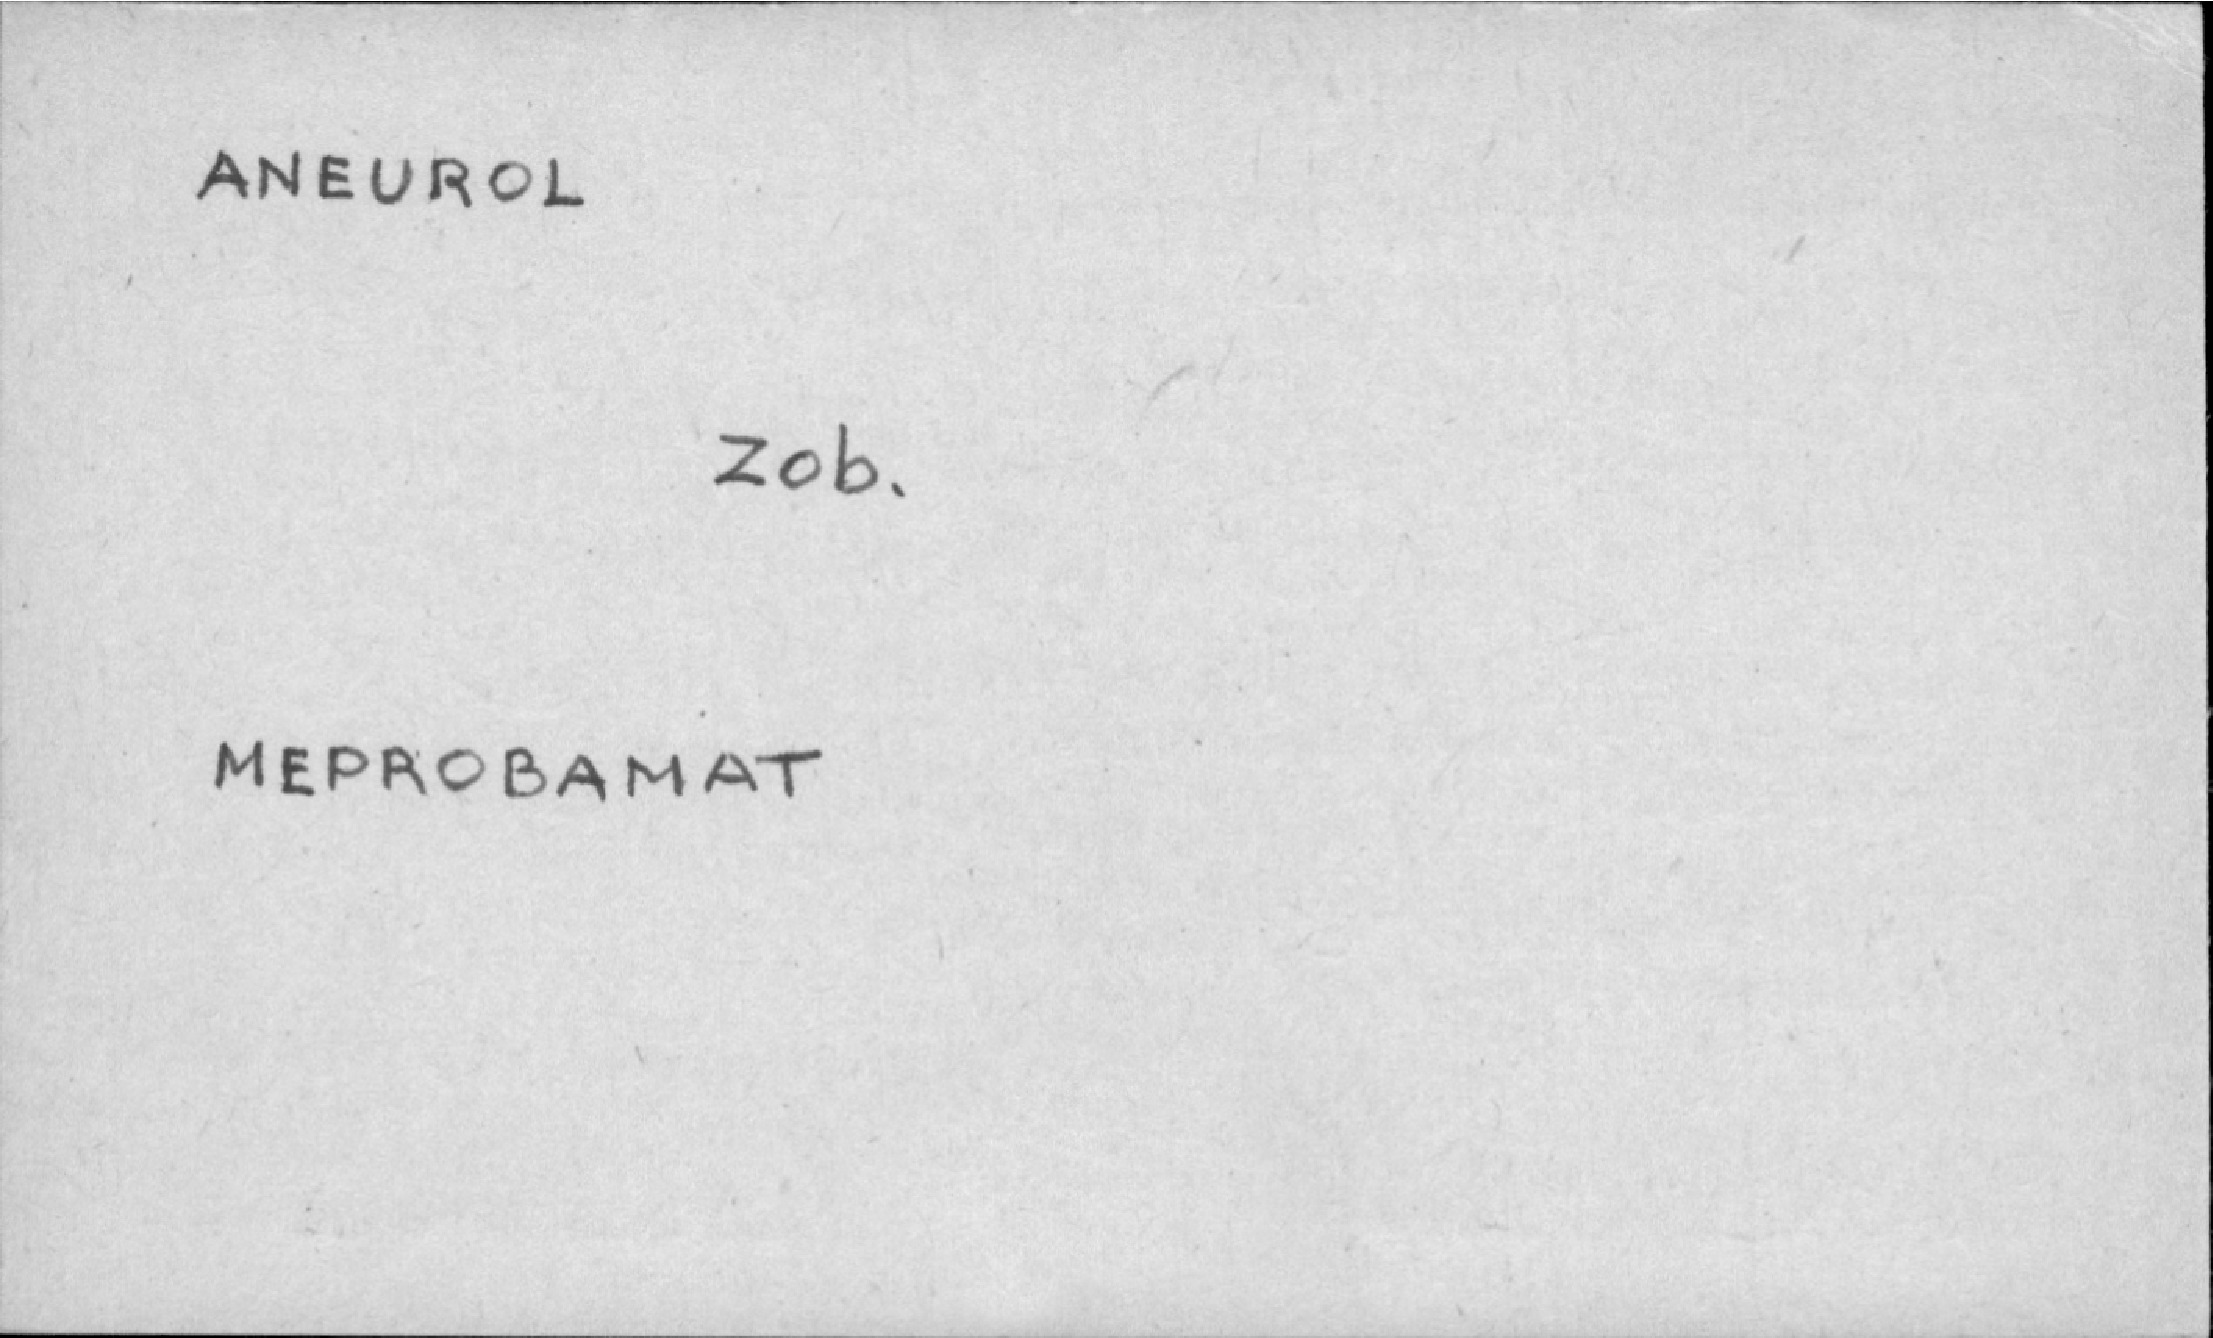 ANEUROL
Zob.
MEPROBAMAT